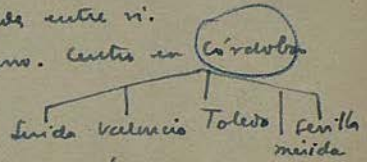 entre sí.
no. Centro en Córdoba
Lérida Valencia Toledo Sevilla
Mérida